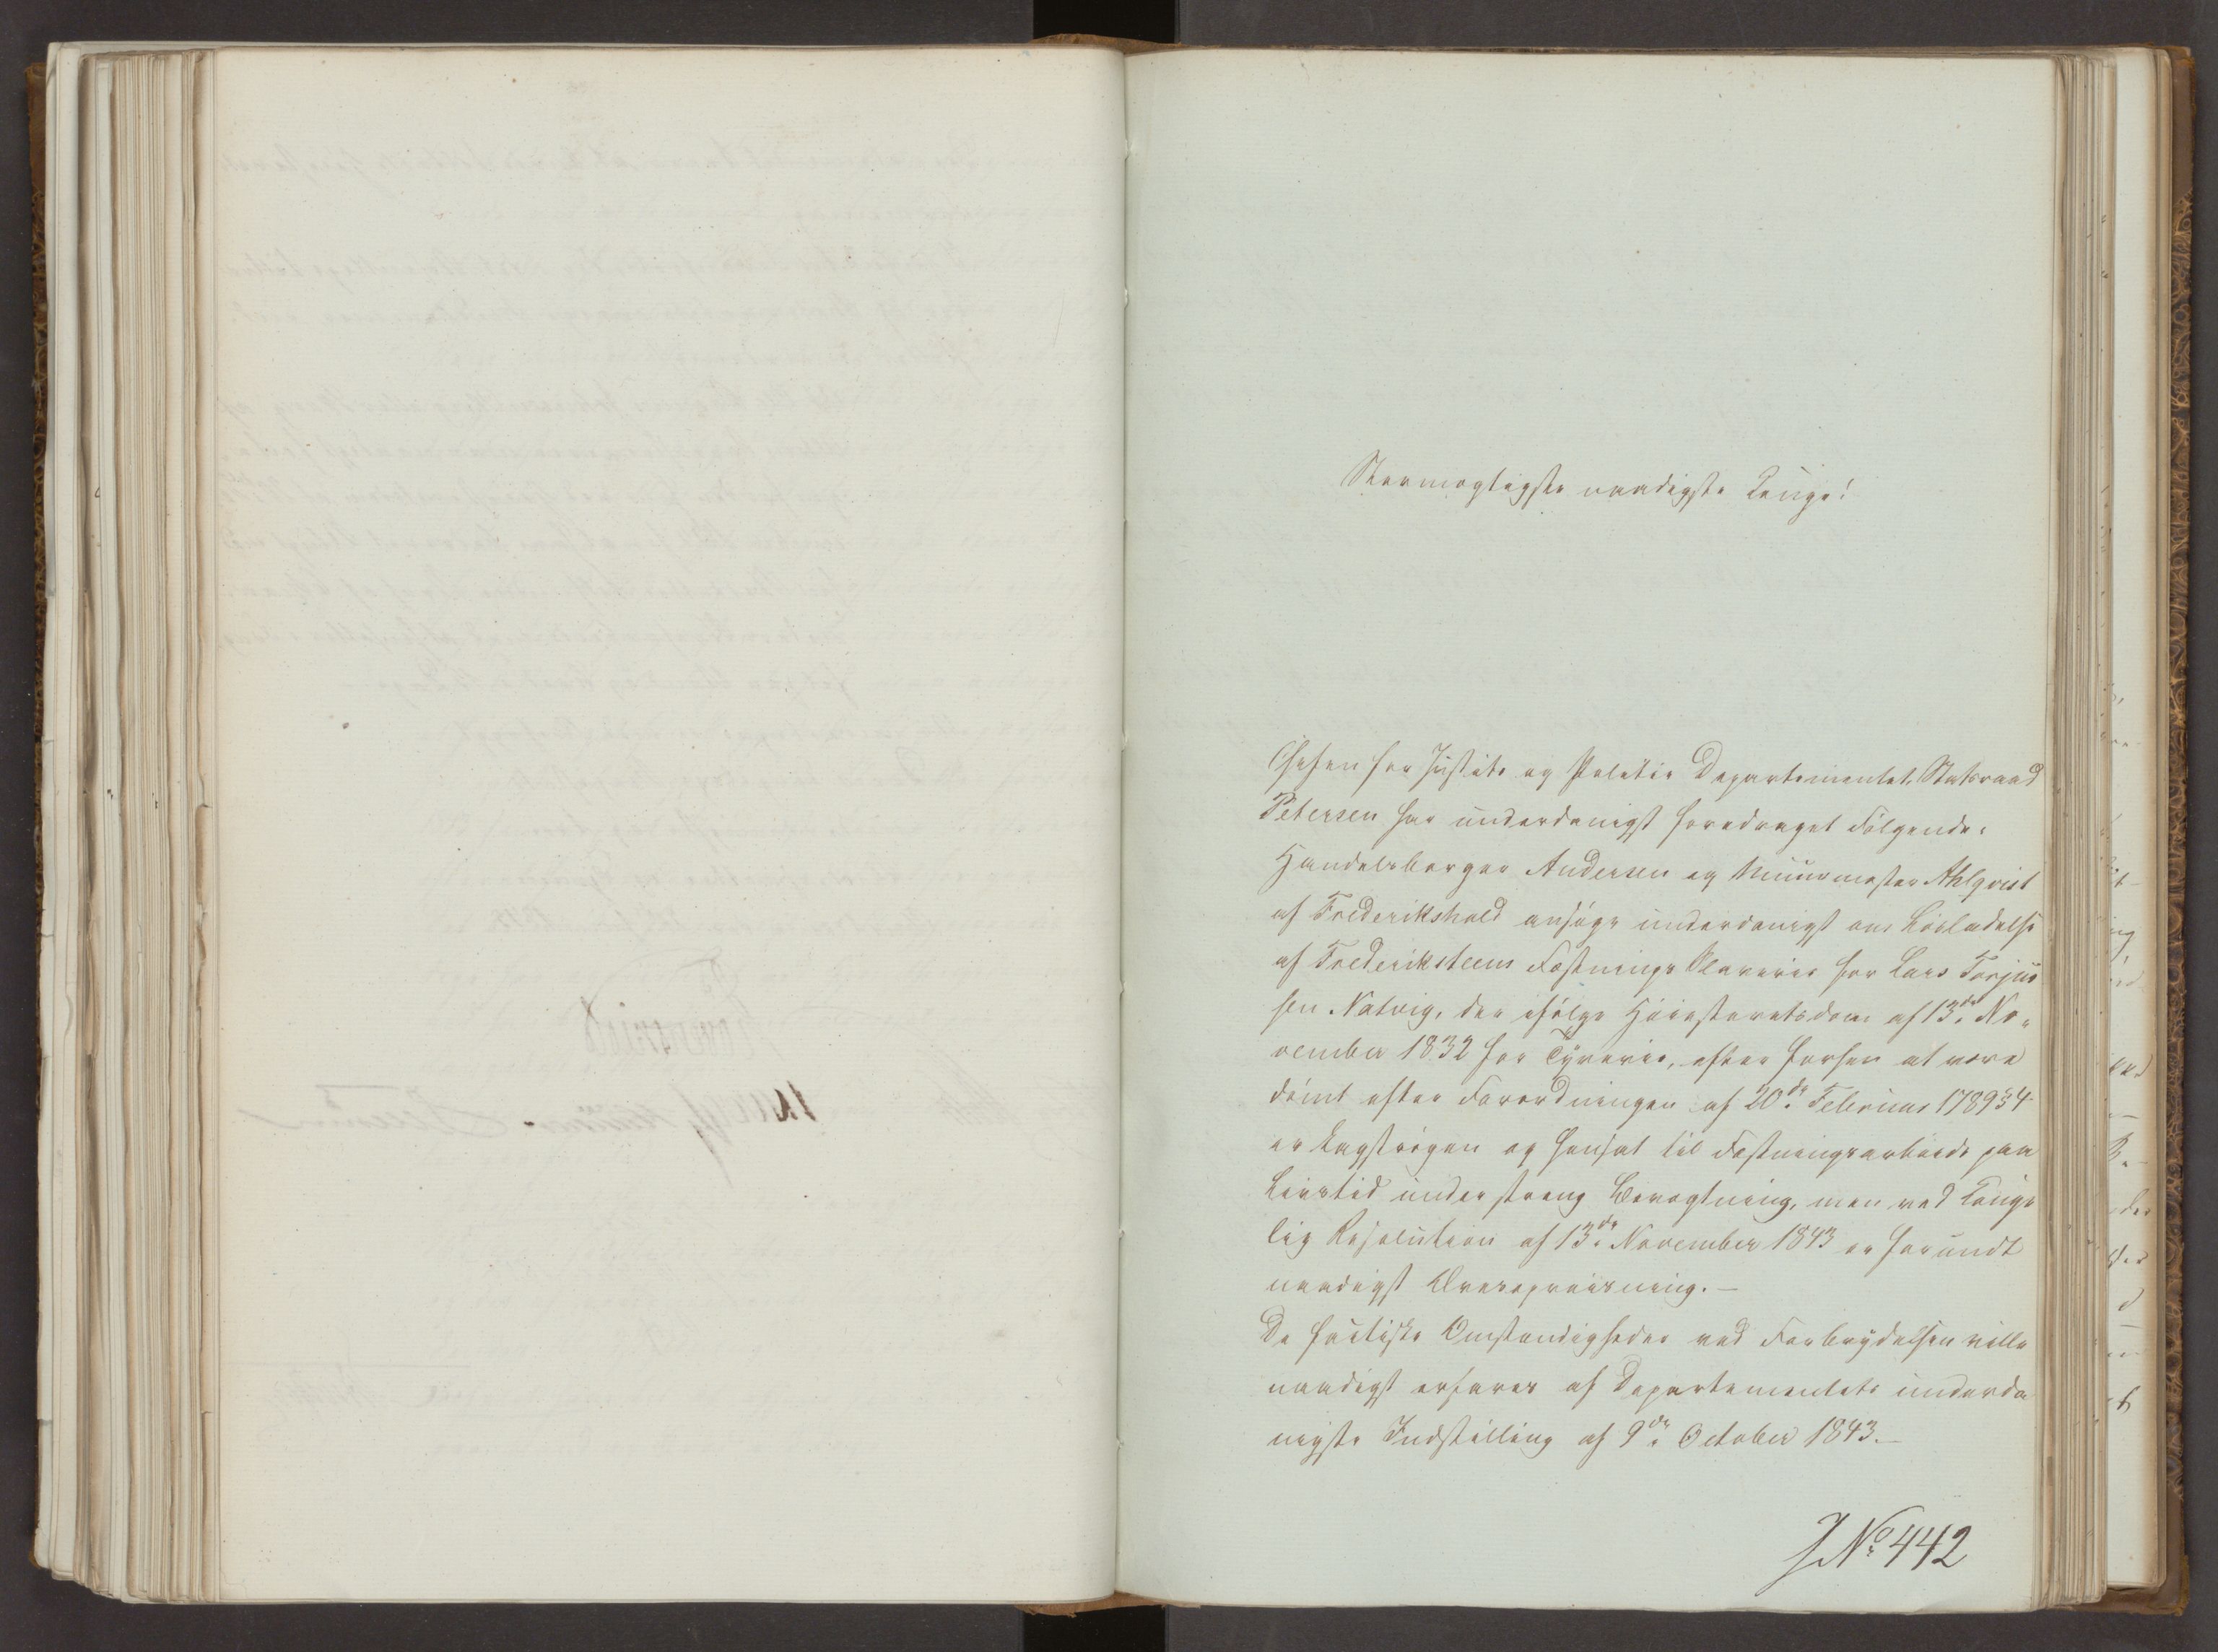 Stormægtigste naadigste Konge!
Chefen for Justits og Politie Departementet, Statsraad
Petersen har underdanigst foredraget Følgende:
Handelsborger Andersen og Muurmester Ahlqvist
af Fredrikshald ansøge underdanigst om Løsladelse
af Frederiksteens Fæstnings Slaverie for Lars Torjus
sen Natvig, der ifølge Høiesteretsdom af 13de No,
vember 1832 for Tyverie, efter forhen at være
dømt efter Forordningen af 20de Februar 1789 § 4
er kagstrøgen og hensat til Fæstningsarbeide paa
Livstid under streng Bevogtning, men ved Konge
lig Resolution af 13de November 1843 er forundt
naadigst Æresopreisning. –
De factiske Omstændigheder ved Forbrydelsen ville
naadigst erfares af Departementets underda
nigste Indstilling af 9de October 1843. –
J. No. 442